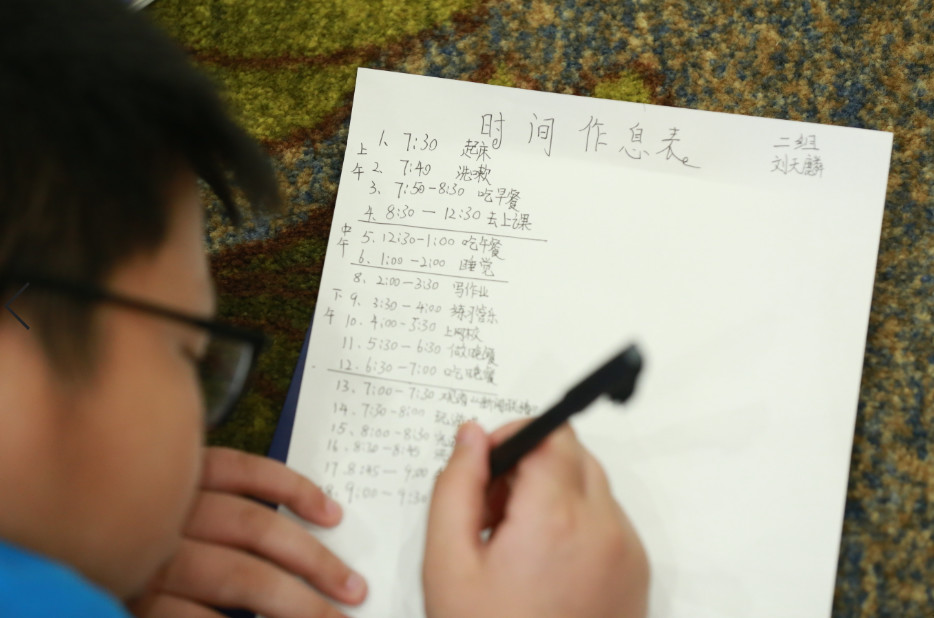 时间作息表
二组
刘天麟
上午
1、7:30 起床
2、7:40 洗嗽
3、7:50-8:30 吃早餐
4、8:30 — 12:30 去上课
中午
5、12:30-1:00 吃午餐
6、1:00 -2:00 睡觉
下午
8、2:00-3:30 写作业
9、3:30-4:00 练习音乐
10、4:00-5:30 上网校
11、5:30-6:30 做晚餐
12、6:30-7:00 吃晚餐
13、7:00-7:30 观看“新闻联播”
14、7:30-8:00
15、8:00-8:30
16、8:30-8:45
17、8:45-9:00
9:00-9:30